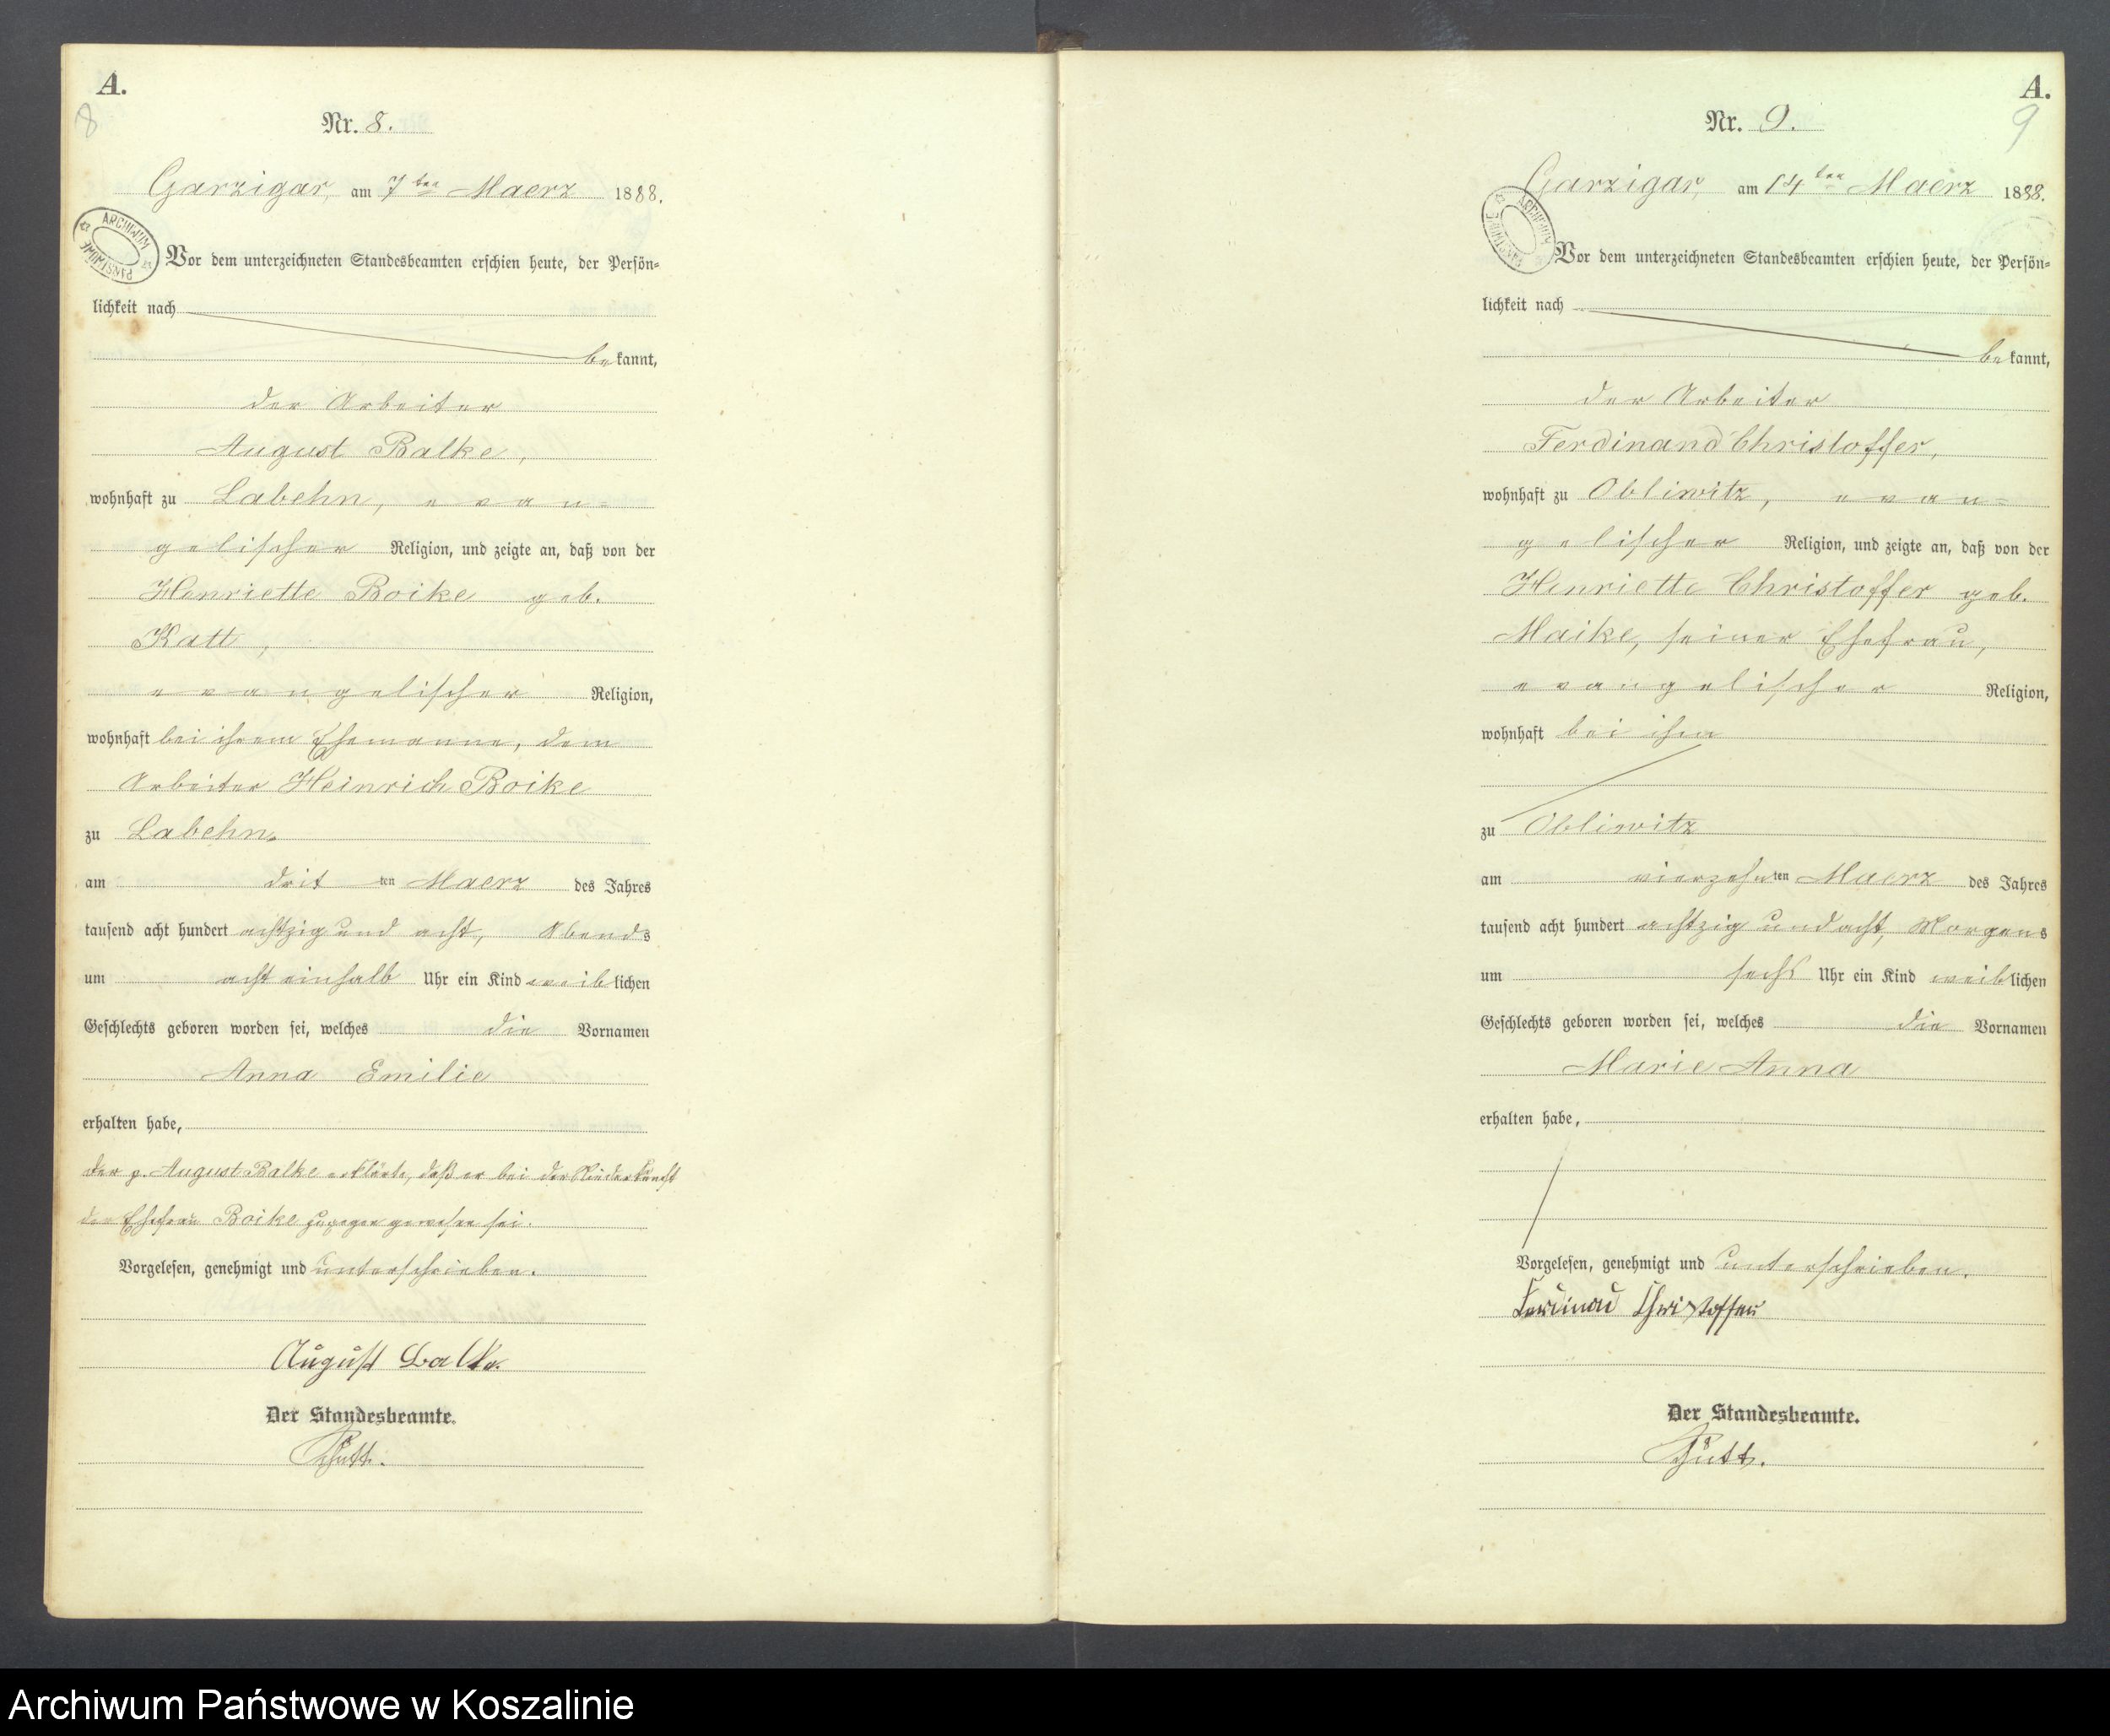 A.
8
Nr. 8.
Garzigar, am 7ten Maerz 1888.
ARCHIWUM PAŃSTWOWE
Vor dem unterzeichneten Standesbeamten erschien heute, der Persön=
lichkeit nach
bekannt,
der Arbeiter
August Balke,
wohnhaft zu Labehn, evan=
gelischer Religion, und zeigte an, daß von der
Henriette Boike geb.
Katt,
evangelischer Religion,
wohnhaft bei ihrem Ehemanne, dem
Arbeiter Heinrich Boike
zu Labehn.
am dritten Maerz des Jahres
tausend acht hundert achtzig und acht, Abends
um acht einhalb Uhr ein Kind weiblichen
Geschlechts geboren worden sei, welches die Vornamen
Anna Emilie
erhalten habe,
der p. August Balke erklärte, daß er bei der Niederkunft
der Ehefrau Boike zugegen gewesen sei.
Vorgelesen, genehmigt und unterschrieben.
August Balke.
Der Standesbeamte.
A.
9
Nr. 9.
Garzigar, am 14ten Maerz 1888.
ARCHIWUM PAŃSTWOWE
Vor dem unterzeichneten Standesbeamten erschien heute, der Persön=
lichkeit nach
bekannt,
der Arbeiter
Ferdinand Christoffer,
wohnhaft zu Obliwitz, evan=
gelischer Religion, und zeigte an, daß von der
Henriette Christoffer geb.
Maike, seiner Ehefrau,
evangelischer Religion,
wohnhaft bei ihm
zu Obliwitz
am vierzehnten Maerz des Jahres
tausend acht hundert achtzig und acht, Morgens
um sechs Uhr ein Kind weiblichen
Geschlechts geboren worden sei, welches die Vornamen
Marie Anna
erhalten habe,
Vorgelesen, genehmigt und unterschrieben.
Ferdinad Christoffer
Der Standesbeamte.
Archiwum Państwowe w Koszalinie